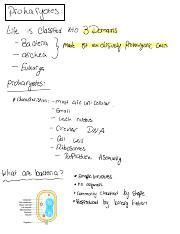 Prokaryotes
Life is Classified into 3 Domains
- Bacteria
- archea
made of exclusively Prokaryotic Cells
- Eukarya
prokaryotes:
• Characteristics:
- most are unicellular
- Small
- Lack nucleus
- Circular DNA
- Cell wall
- Ribosomes
What are bacteria?
• Simple structures
• no organelles
• Commonly classified by Shape
• Reproduced by binary fission